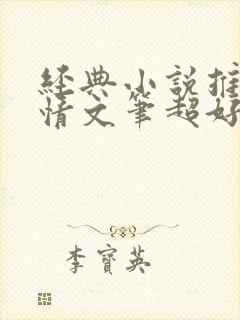 經典小說推
情文筆超好
李寶英